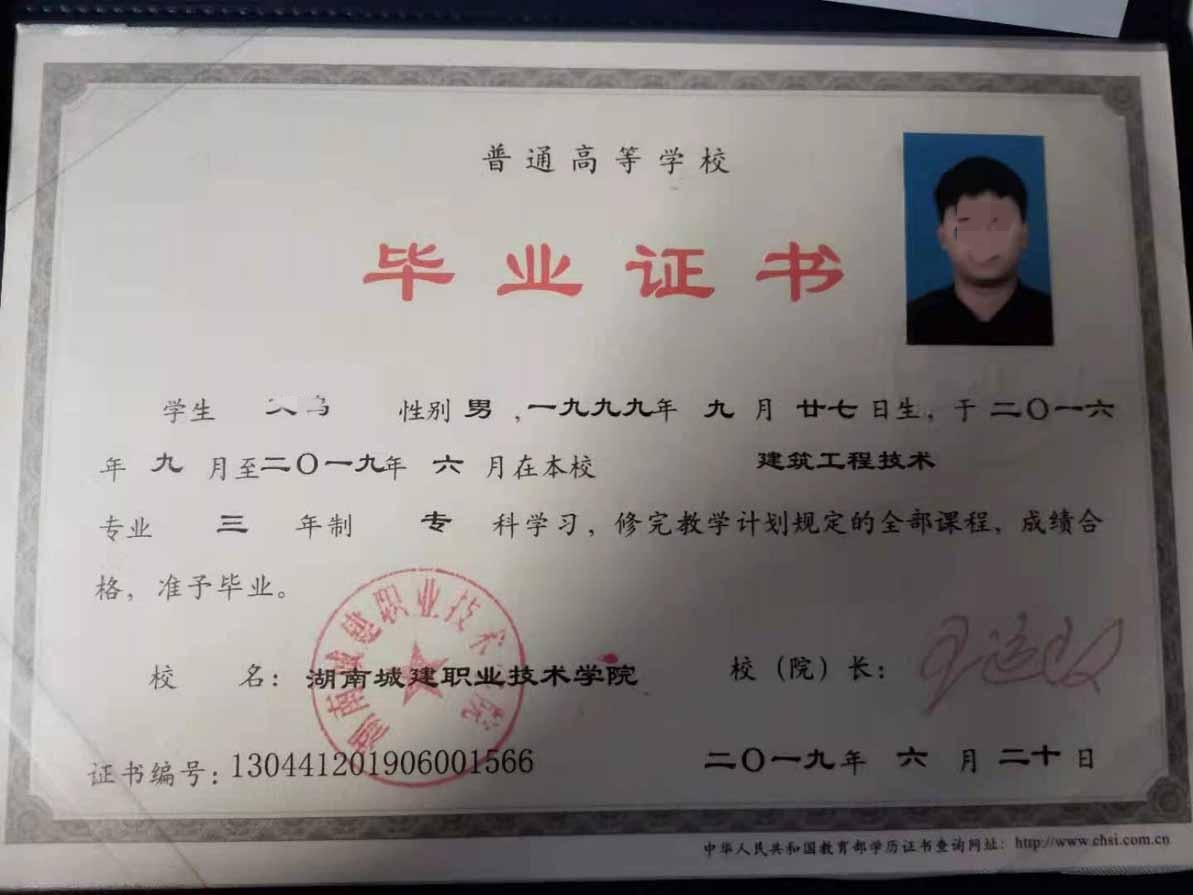 普通高等学校
毕业证书
学生 性别 男 ,一九九九年 九 月 廿七 日生, 于 二〇一六
年 九 月至二〇一九年 六 月在本校 建筑工程技术
专业 三 年制 专 科学习, 修完教学计划规定的全部课程, 成绩合
格, 准予毕业。
校 名: 湖南城建职业技术学院 校 (院) 长:
证书编号: 130441201906001566 二〇一九年 六 月 二十 日
中华人民共和国教育部学历证书查询网址: http://www.chsi.com.cn